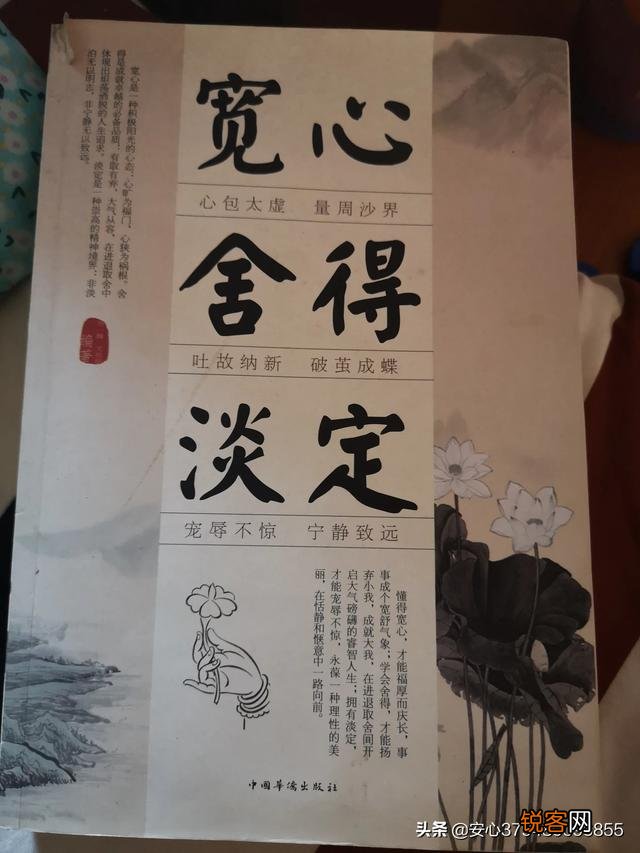 宽心
心包太虚 量周沙界
舍得
吐故纳新 破茧成蝶
淡定
宠辱不惊 宁静致远
宽心是一种积极阳光的心态：心旷为福门，心狭为祸根。舍
得是成就卓越的必备品质：有取有弃，大气从容，在进退取舍中
体现出坦荡洒脱的人生追求。淡定是一种崇高的精神境界：非淡
泊无以明志，非宁静无以致远。
编著
懂得宽心，才能福厚而庆长，事
事成个宽舒气象；学会舍得，才能扬
弃小我，成就大我，在进退取舍间开
启大气磅礴的睿智人生；拥有淡定，
才能宠辱不惊，永葆一种理性的美
丽，在恬静和惬意中一路向前。
中国华侨出版社
头条
锐客网